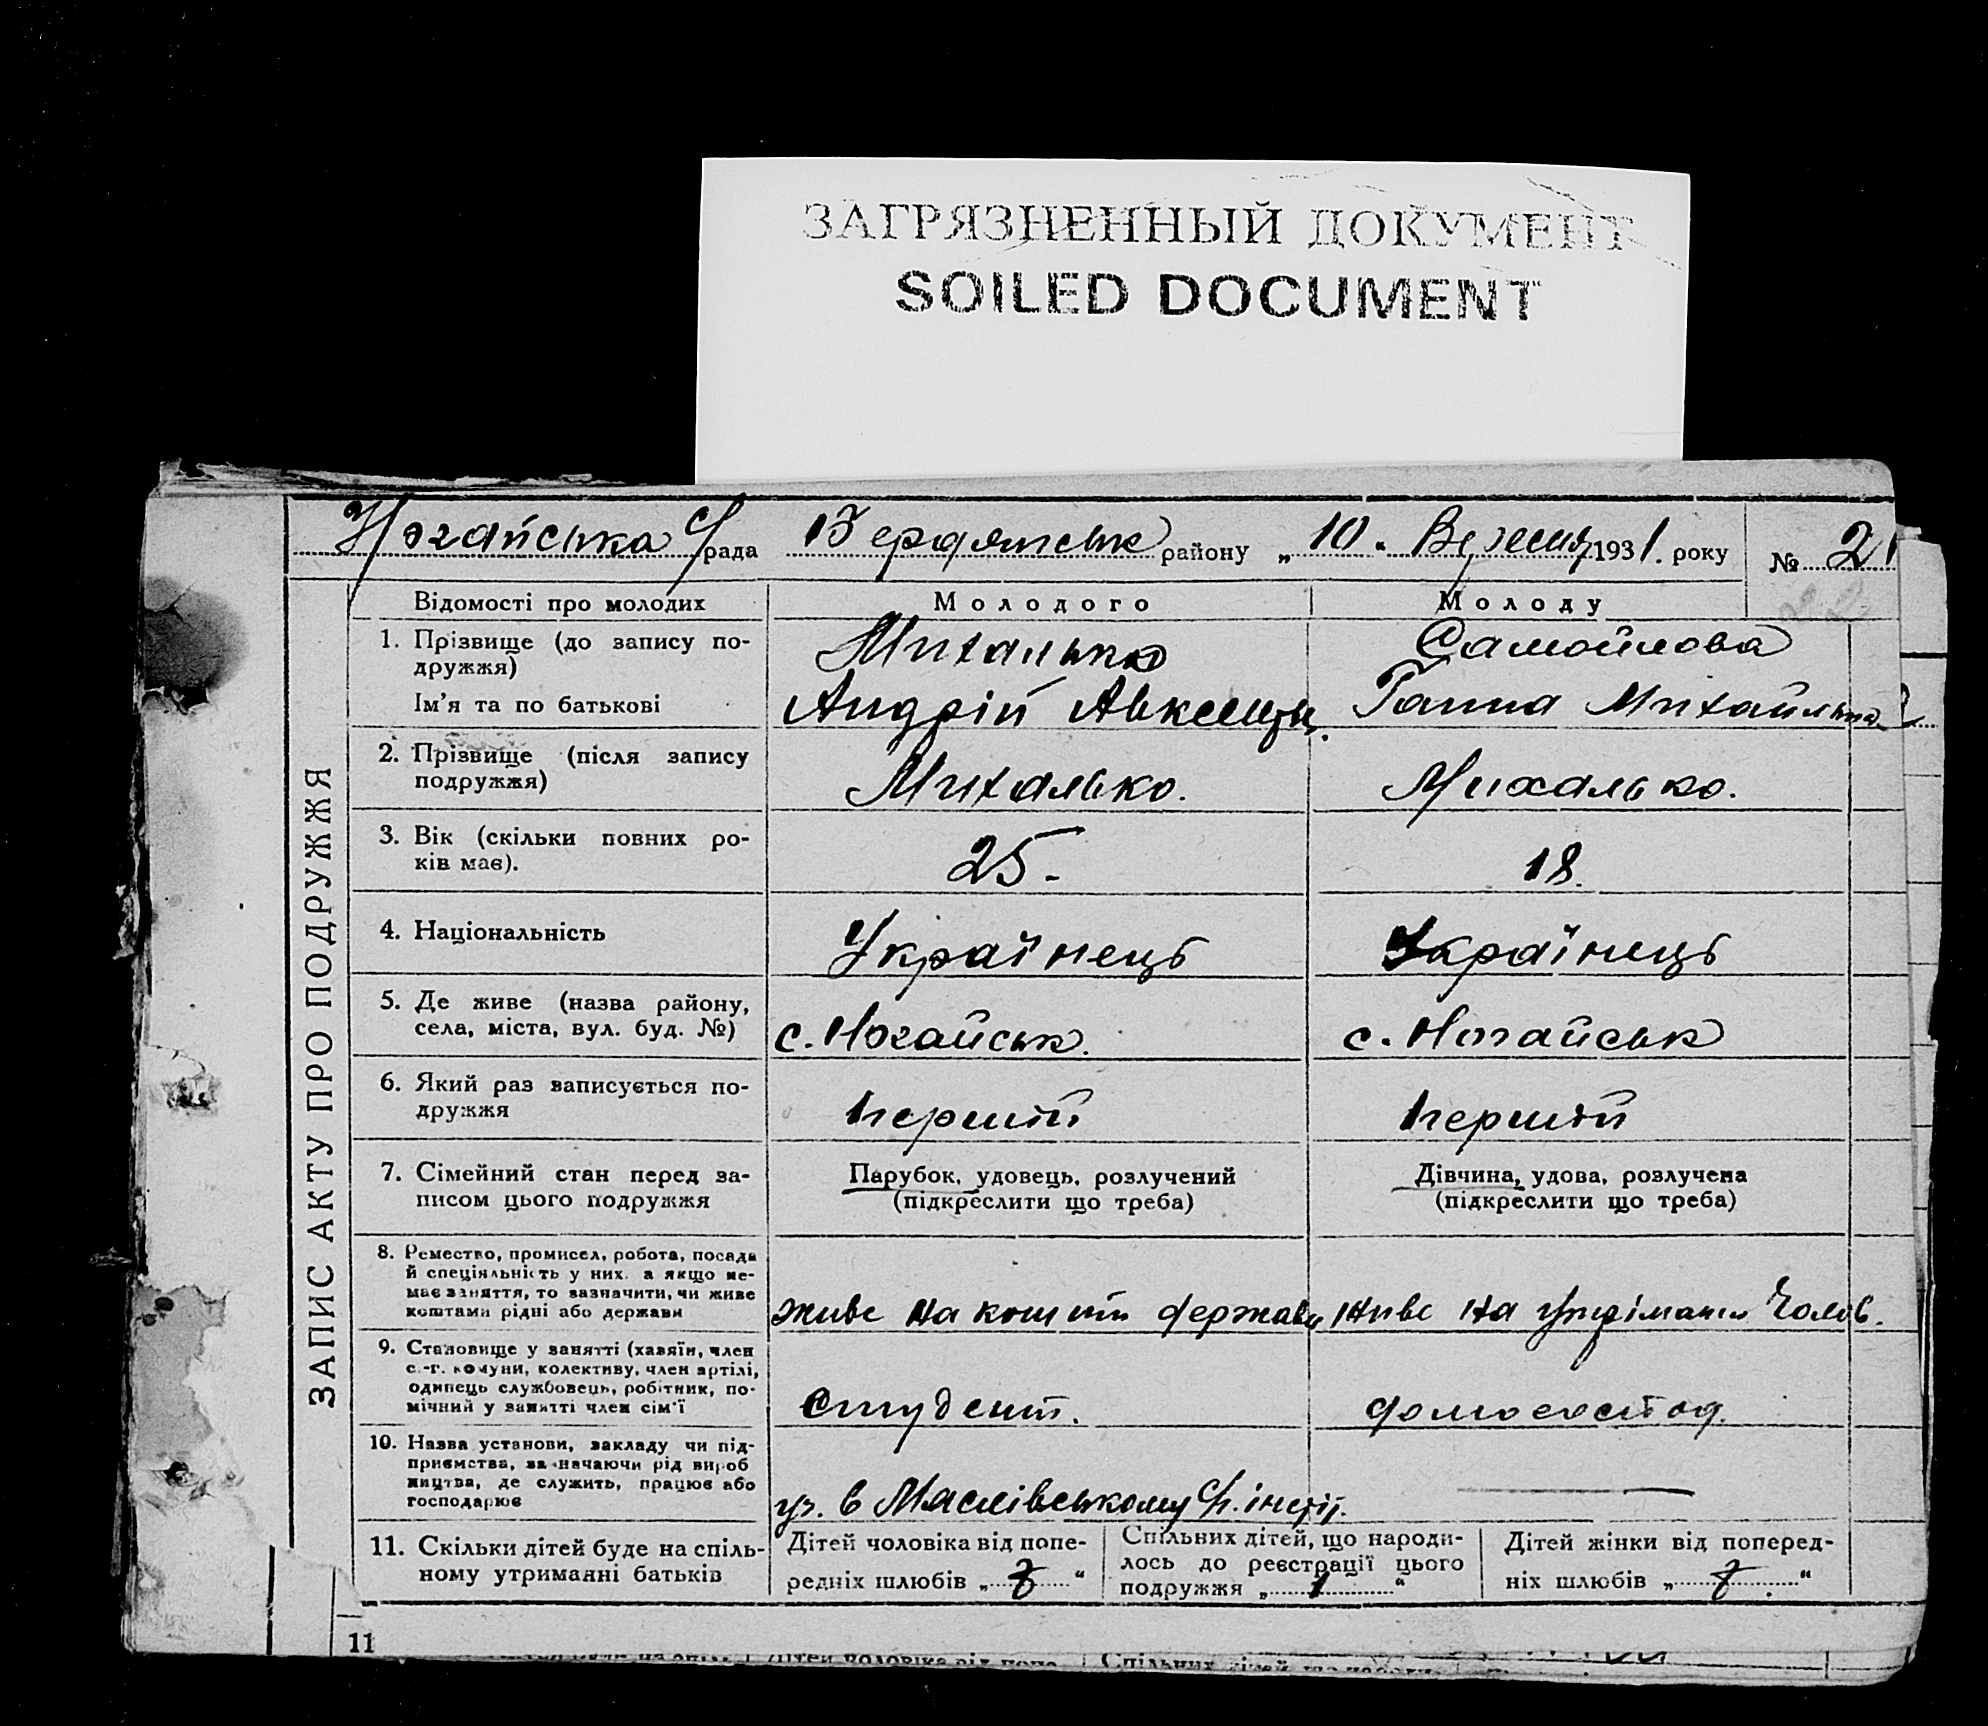 ЗАГРЯЗНЕННЫЙ ДОКУМЕНТ
SOILED DOCUMENT
Ногайська С/рада Бердянськ району „ 10 " Вересня 1931. року № 21
ЗАПИС АКТУ ПРО ПОДРУЖЖЯ
Відомості про молодих Молодого Молоду
1. Прізвище (до запису по-
дружжя) Михалько Самойлова
Ім'я та по батькові Андрій Авксент. Ганна Михайлівна
2. Прізвище (після запису
подружжя) Михалько. Михалько.
3. Вік (скільки повних ро-
ків має). 25. 18.
4. Національність Українець Українець
5. Де живе (назва району,
села, міста, вул. буд. №) с. Ногайськ. с. Ногайськ
6. Який раз записується по-
дружжя перший перший
7. Сімейний стан перед за-
писом цього подружжя
Парубок, удовець, розлучений
(підкреслити що треба)
Дівчина, удова, розлучена
(підкреслити що треба)
8. Ремество, промисел, робота, посада
й спеціяльність у них, а якщо не-
має заняття, то зазначити, чи живе
коштами рідні або держави живе на кошти держави живе на утрімання Чолов.
9. Становище у занятті (хазяїн, член
с.-г. комуни, колективу, член артілі,
одинець службовець, робітник, по-
мічний у занятті член сім'ї студент.
10. Назва установи, закладу чи під-
приємства, зазначаючи рід вироб
ництва, де служить, працює або
господарює уч. в Маслівському інст.
11. Скільки дітей буде на спіль-
ному утриманні батьків
Дітей чоловіка від попе-
редніх шлюбів „ "
Спільних дітей, що народи-
лось до реєстрації цього
подружжя „ 1 "
Дітей жінки від поперед-
ніх шлюбів „ "
11